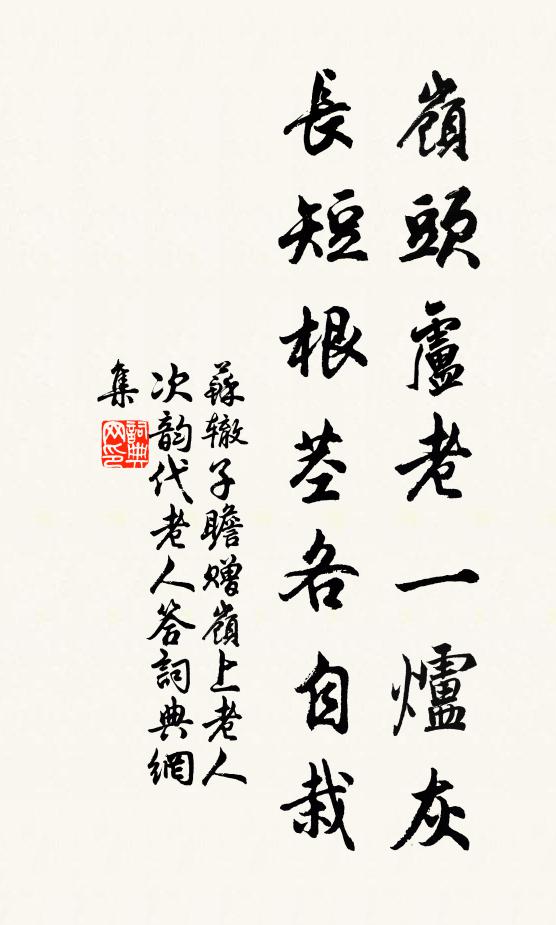 嶺頭盧老一爐灰
長短根莖各自栽
蘇轍子瞻贈嶺上老人
次韵代老人答詞典網
集
詞典
网印